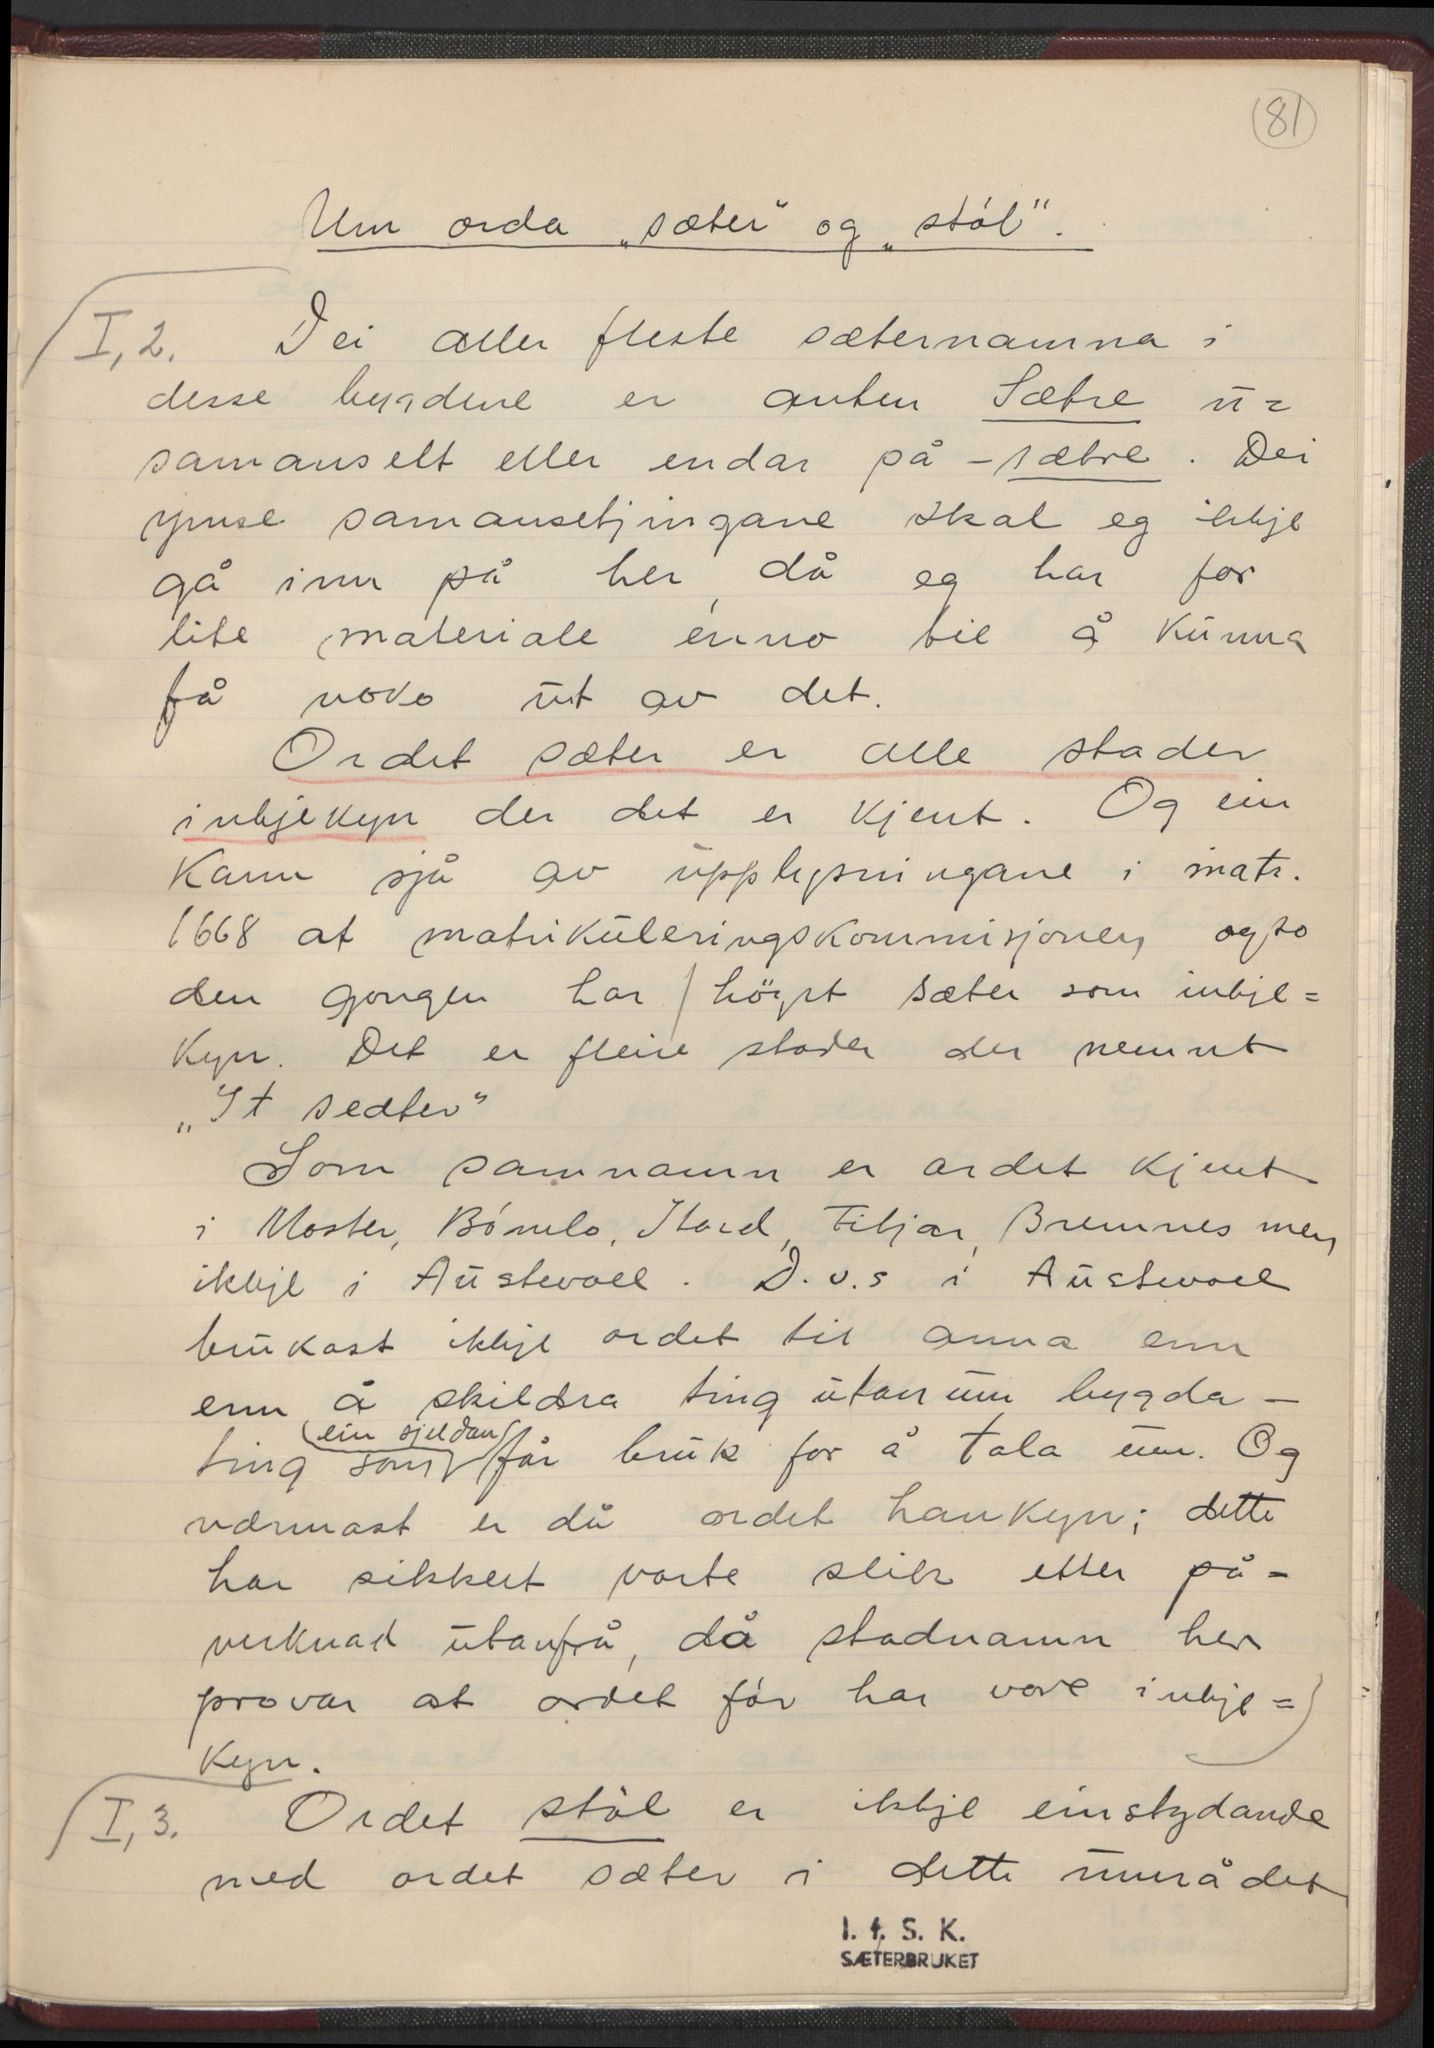 81
Um orda „sæter" og „stól".
I, 2. Dei aller fleste sæternamna i
desse bygdene er anten Sætre u=
samansett eller endar på -sætre. Dei
ymse samansetjingane skal eg ikkje
gå inn på her, då eg har for
lite materiale enno til å kunna
få noko ut av det.
Ordet sæter er alle stader
inkjekyn der det er kjent. Og ein
kann sjå av upplysningane i matr.
1668 at matrikuleringskommisjonen ogso
den gongen har höyrt sæter som inkje=
kyn. Det er fleire stader der nemnt
„It sedter"
Som samnamn er ordet kjent
i Moster, Bömlo, Stord, Fitjar, Bremnes men
ikkje i Austevoll. D.v.s i Austevoll
brukast ikkje ordet til anna enn
enn å skildra ting utanum bygda -
ting som ein sjeldan får bruk for å tala um. Og
nærmast er då ordet hankyn; dette
har sikkert vorte slik etter på-
verknad utanfrå, då stadnamn her
provar at ordet för har vore inkje=
kyn.
I, 3. Ordet stöl er ikkje einstydande
med ordet sæter i dette umrådet
I. f. S. K.
SÆTERBRUKET